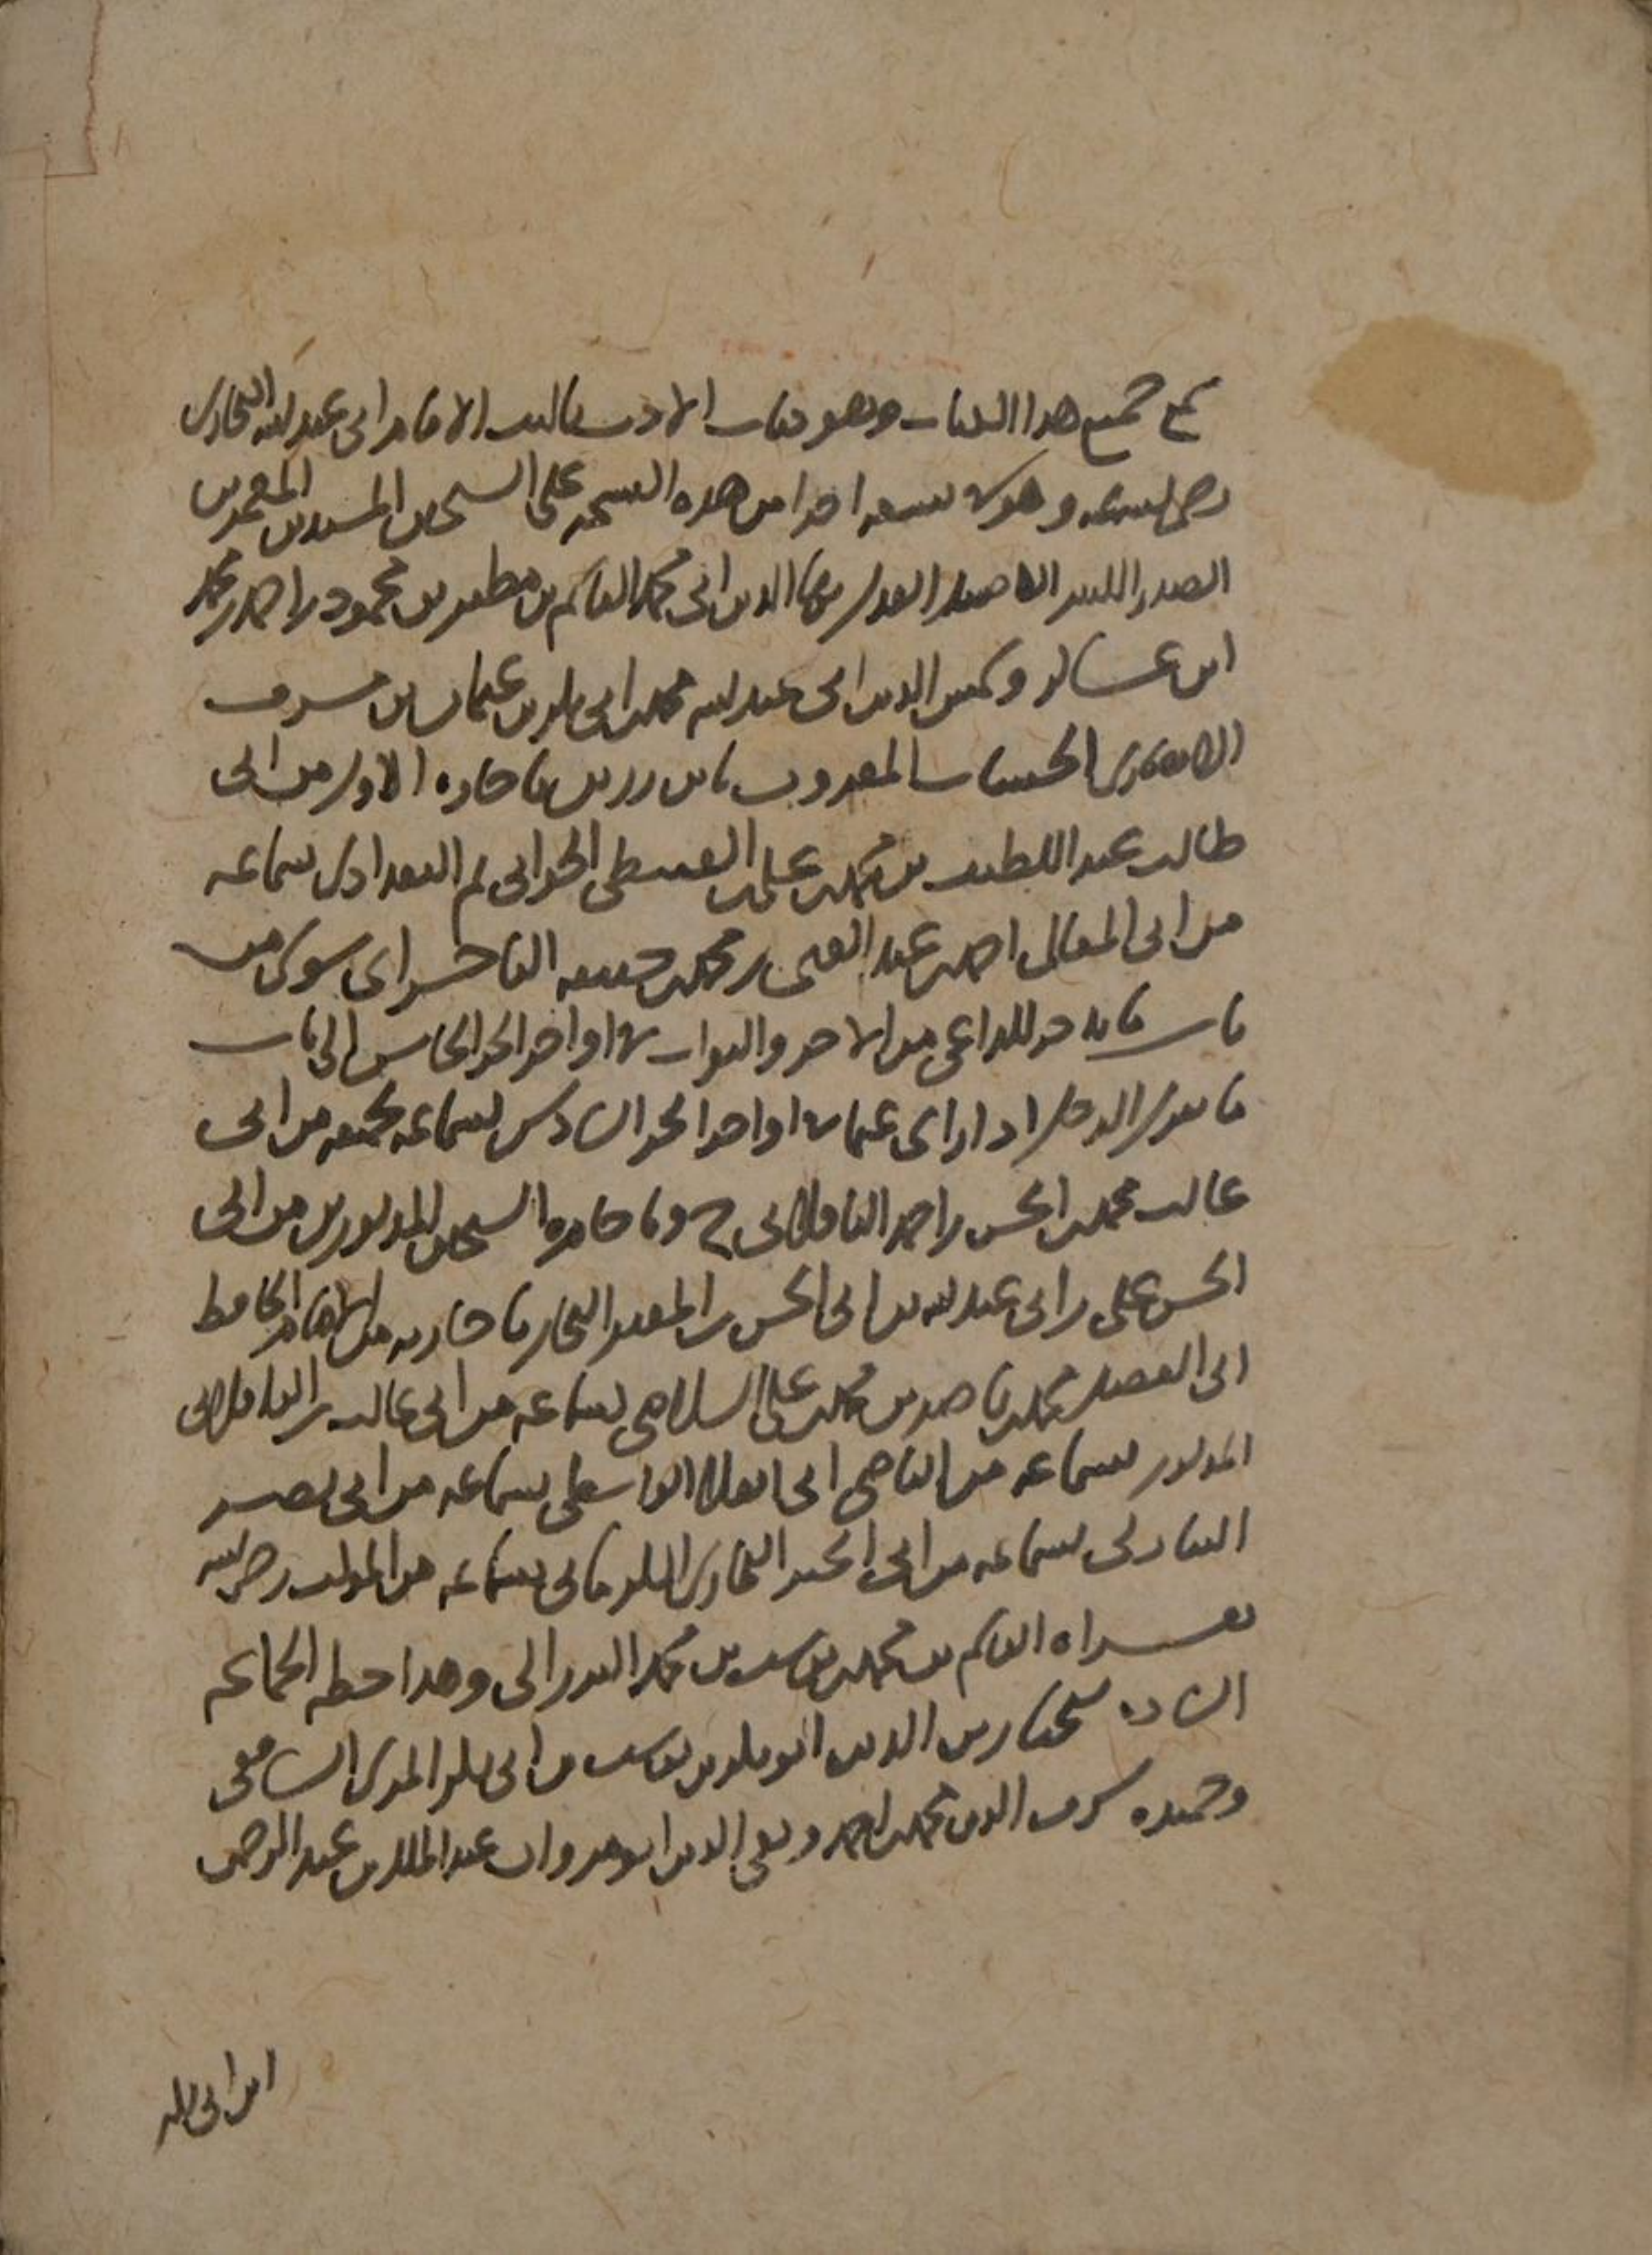 سمع جميع هذا الكتاب وهو كتاب الادب تاليف الامام ابي عبد الله البخاري
رضي الله عنه وهو في تسعة اجزا من هذه النسخة على الشيخين المسندين المعمرين
الصدر الكبير الفاضل العدل بها الدين ابي محمد القاسم بن مظفر بن محمود بن احمد بن محمد
ابن عساكر وشمس الدين ابي عبد الله محمد بن ابي بكر بن عثمان بن مشرف
الانصاري الخشاب المعروف بابن رزين باجازة الاول من ابي
طالب عبد اللطيف بن محمد بن علي القبيطي الحراني ثم البغدادي بسماعه
من ابي المعالي احمد بن عبد الغني بن محمد بن حنيفة الباجسراي سوى من
باب ما يدخر للداعي من الاجر والثواب في اواخر الجز الخامس الى باب
ما يقول الرجل اذا راى غيما في اواخر الجز السادس بسماعه لجميعه من ابي
غالب محمد بن الحسن بن احمد الباقلاني ح وباجازة الشيخين المذكورين من ابي
الحسن علي بن ابي عبد الله بن ابي الحسن بن المقير النجار باجازته من الامام الحافظ
ابي الفضل محمد بن ناصر بن محمد بن علي السلامي بسماعه من ابي غالب بن الباقلاني
المذكور بسماعه من القاضي ابي العلا الواسطي بسماعه من ابي نصر
النيازكي بسماعه من ابي الخير البخاري الكرماني بسماعه من المولف رضي الله عنه
بقراة القاسم بن محمد بن يوسف بن محمد البرزالي وهذا خطه الجماعة
السادة شيخنا زين الدين ابو بكر بن يوسف بن ابي بكر المزي الشافعي
وحفيده شرف الدين محمد بن احمد وتقي الدين ابو مروان عبد الملك بن عبد الرحمن
ابن ابي بكر